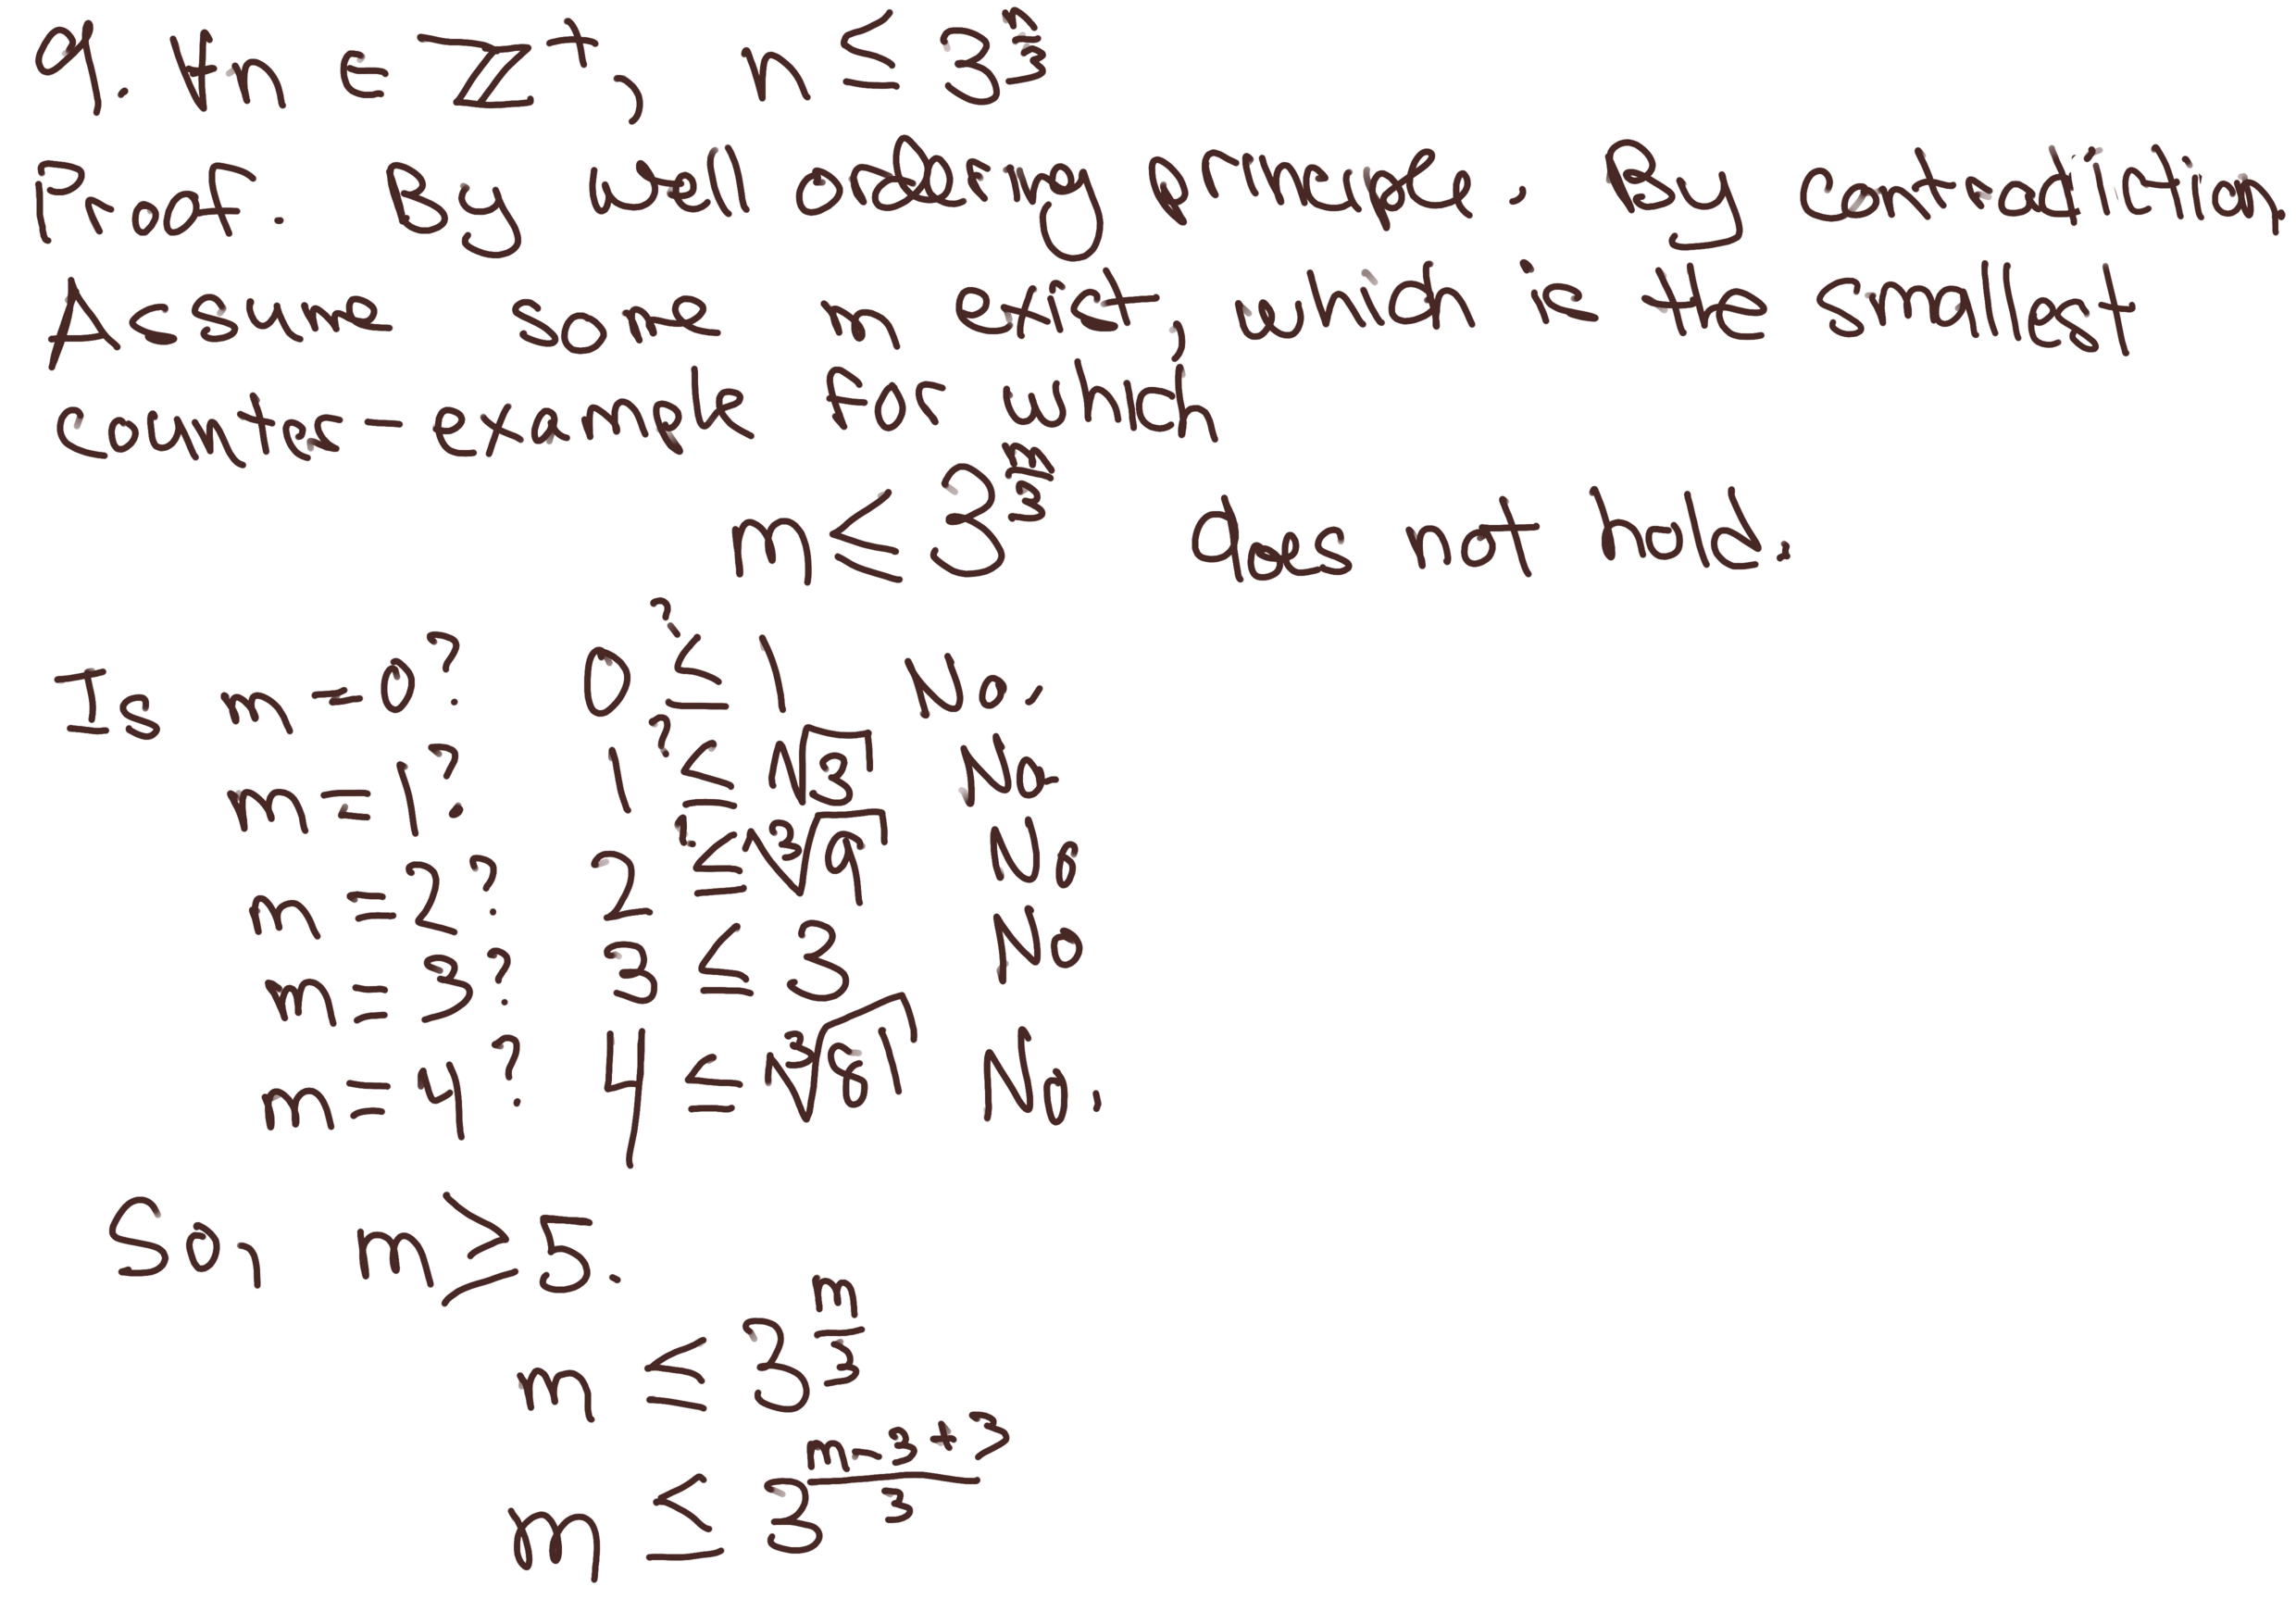 9. ∀n ∈ ℤ⁺, n ≤ 3^(n/3)
Proof. By well ordering principle. By contradiction.
Assume some m exist, which is the smallest
counter-example for which
m ≤ 3^(m/3) does not hold.
Is m = 0? 0 ≤? 1 No.
m = 1? 1 ≤? √3 No.
m = 2? 2 ≤? ∛9 No
m = 3? 3 ≤ 3 No
m = 4? 4 ≤ ∛81 No.
So, m ≥ 5.
m ≤ 3^(m/3)
m ≤ 3^((m-3+3)/3)